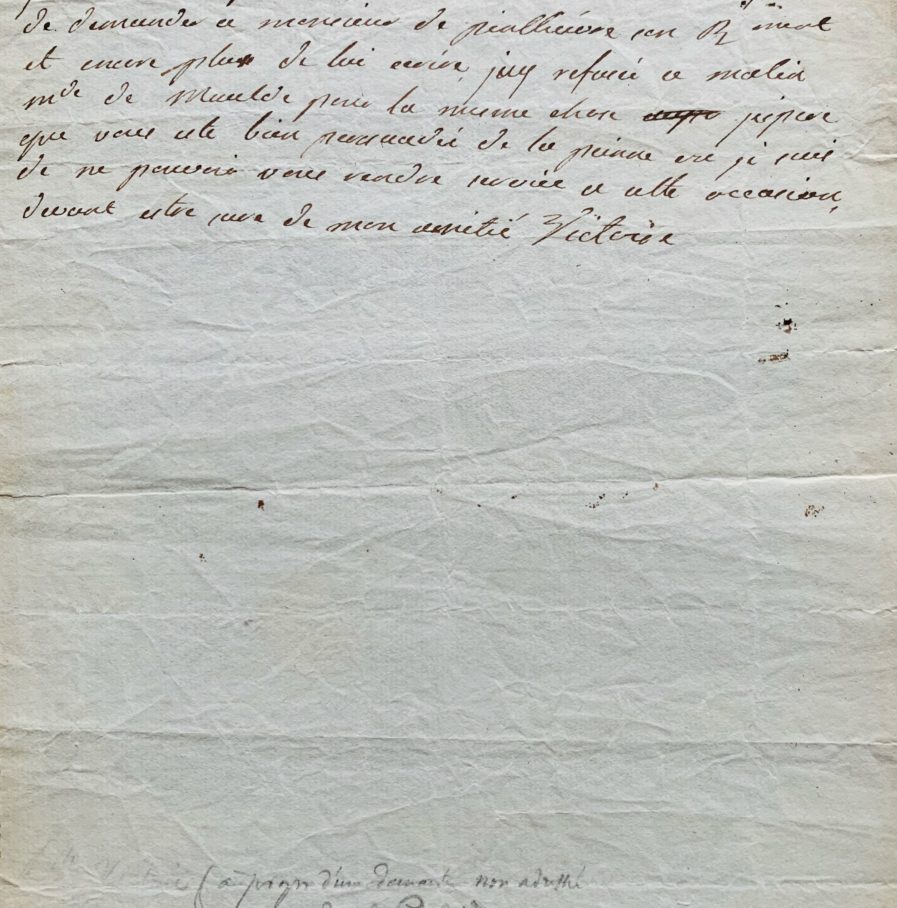 de demander a monsieur de un R iment
et encore plus de lui ecrire, jay refusé ce matin
mde de Maulde pour la mesme chose jespere
que vous ete bien persuadée de la peinne ou je suis
de ne pouvoir vous rendre service a cette occasion,
devant estre sure de mon amitié Victoire
(a propos d'une demande non adressé